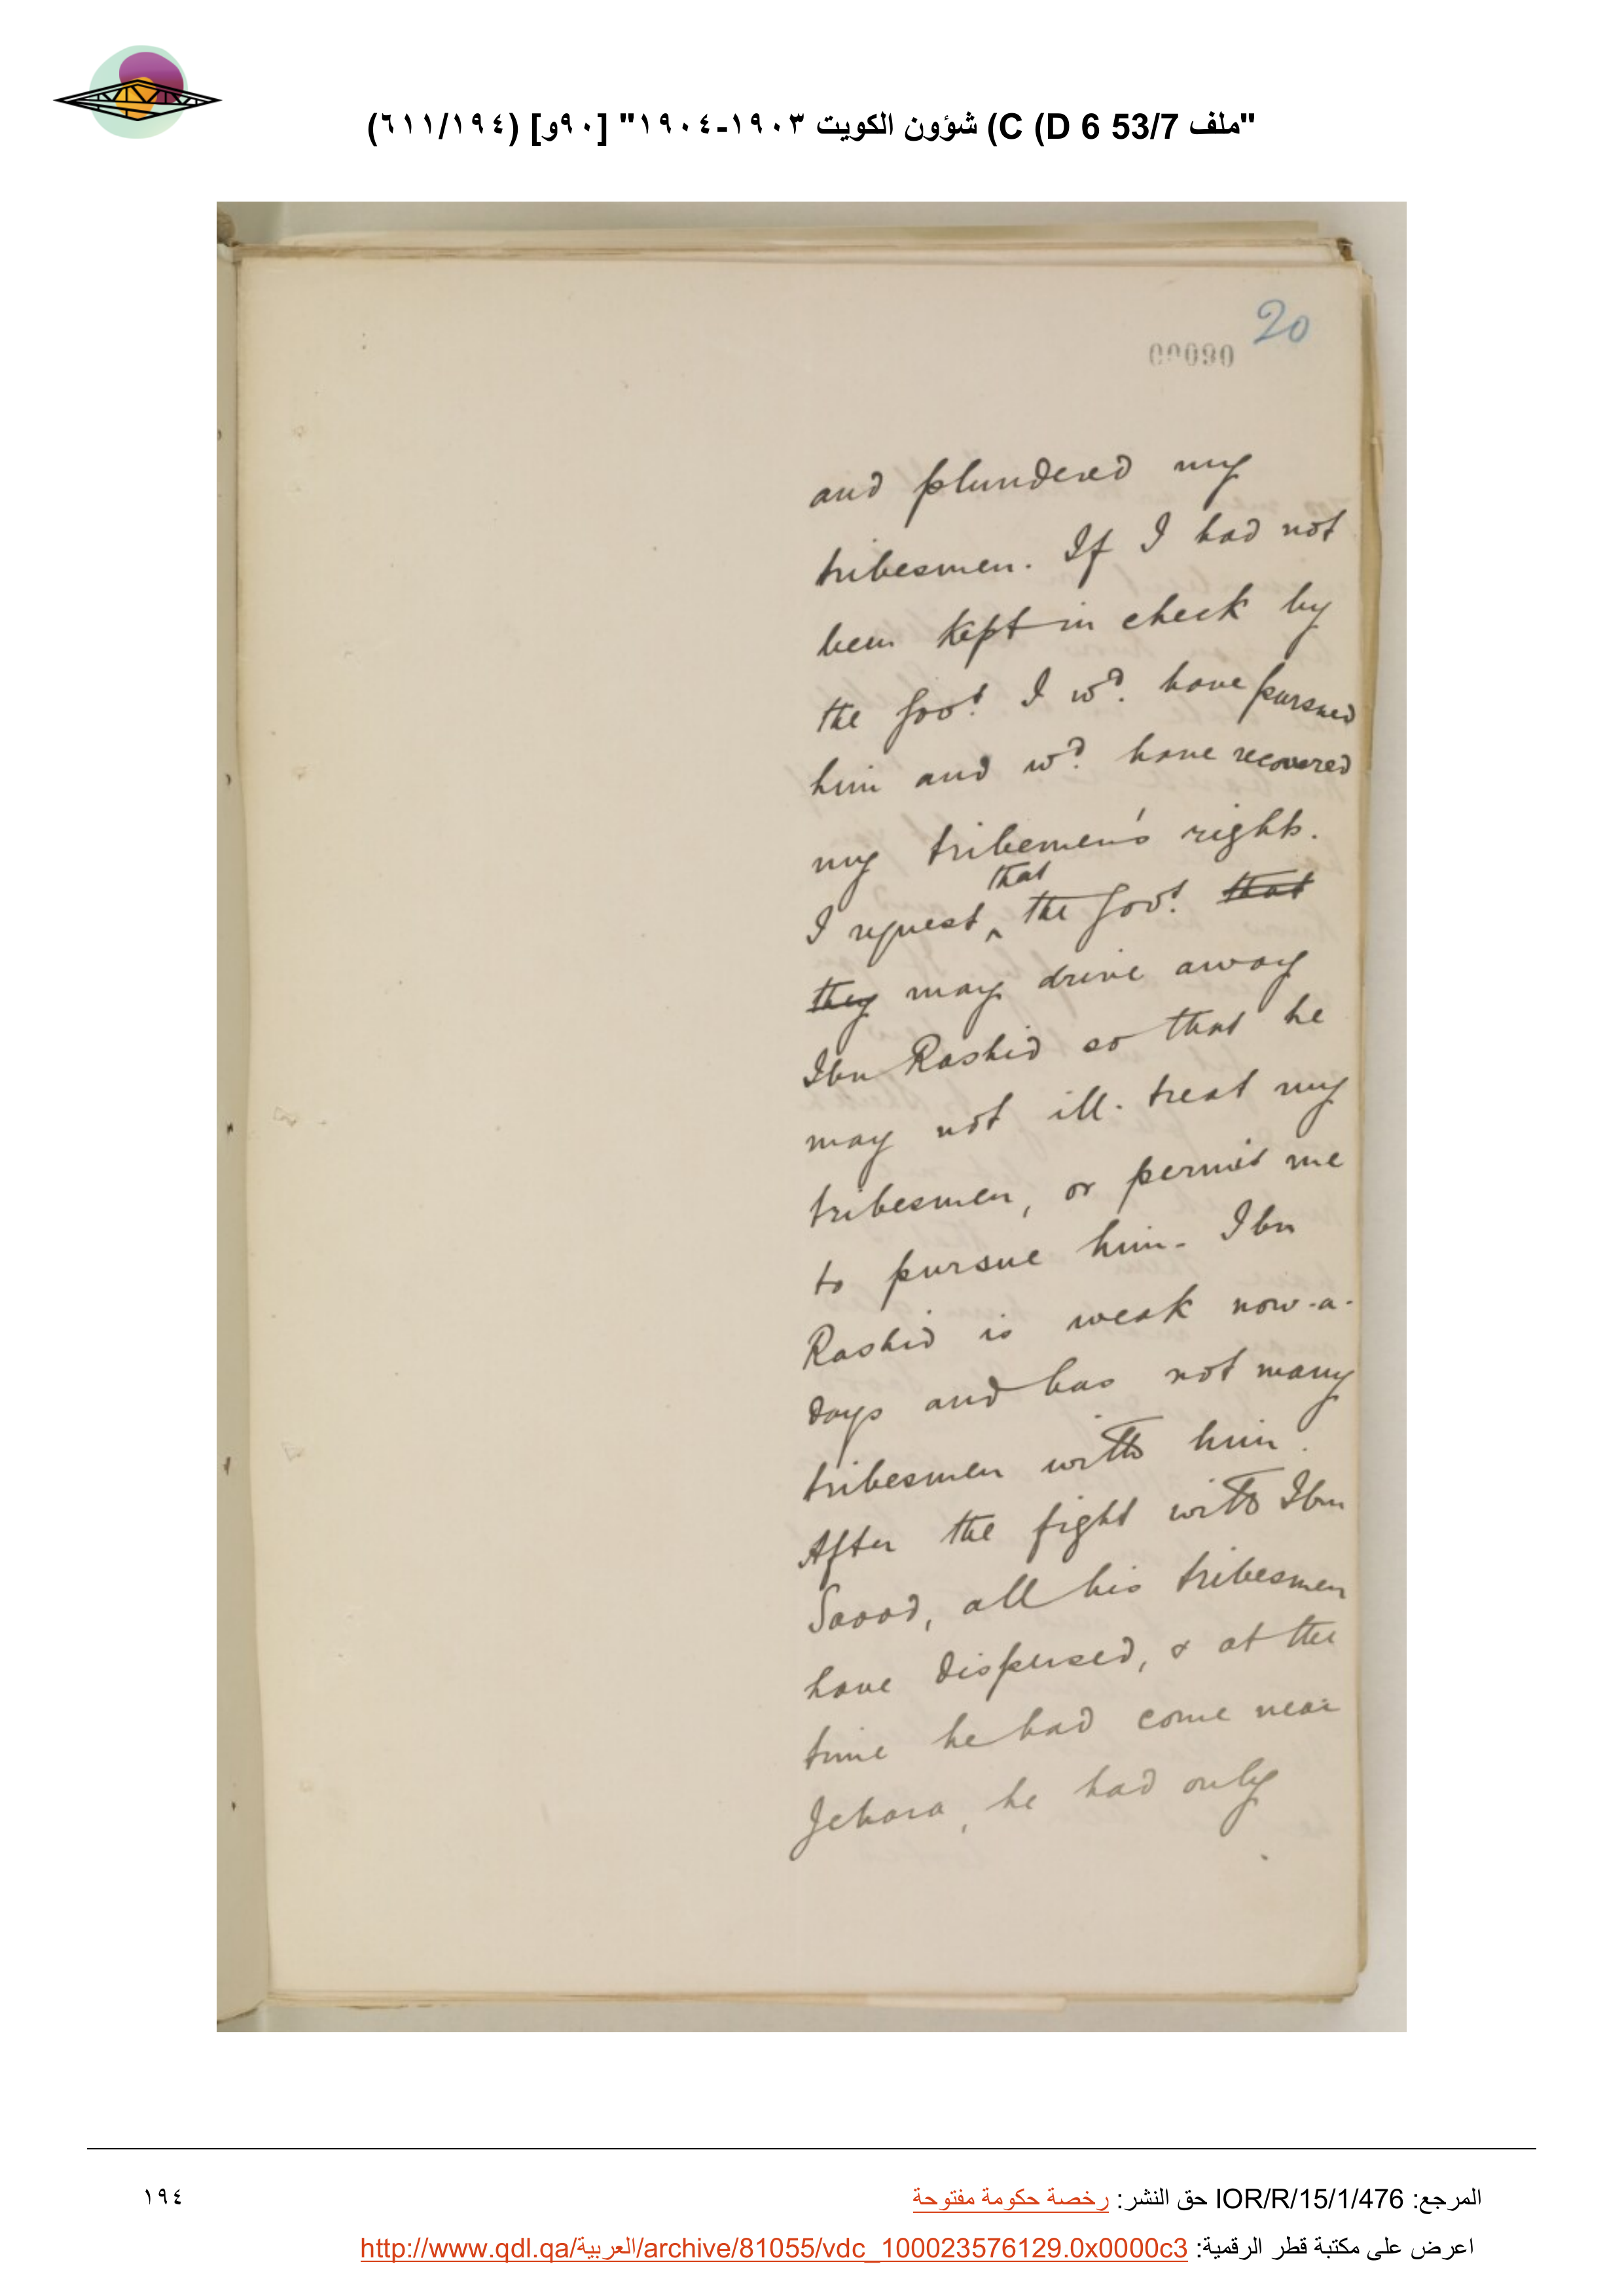 "ملف 53/7 D 6) C) شؤون الكويت ١٩٠٣-١٩٠٤" [٩٠و] (٦١١/١٩٤)
20
00090
and plundered my
tribesmen. If I had not
been kept in check by
the Govt. I wd. have pursued
him and wd. have recovered
my tribemen's rights.
that
I request ^ the Govt. that
they may drive away
Ibn Rashid so that he
may not ill-treat my
tribesmen, or permit me
to pursue him. Ibn
Rashid is weak now-a-
days and has not many
tribesmen with him.
After the fight with Ibn
Saood, all his tribesmen
have dispersed, & at the
time he had come near
Jehara, he had only
المرجع: IOR/R/15/1/476 حق النشر: رخصة حكومة مفتوحة
١٩٤
اعرض على مكتبة قطر الرقمية: http://www.qdl.qa/العربية/archive/81055/vdc_100023576129.0x0000c3